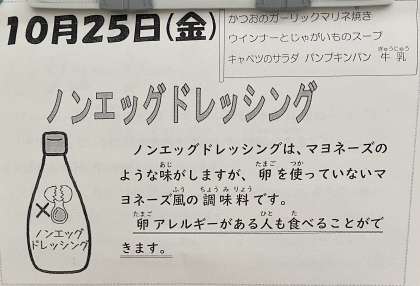 10月25日(金)
かつおのガーリックマリネ焼き
ウインナーとじゃがいものスープ
キャベツのサラダ パンプキンパン 牛乳
ぎゅうにゅう
ノンエッグドレッシング
ノンエッグドレッシングは、マヨネーズの
ような味がしますが、卵を使っていないマ
あじ たまご つか
ヨネーズ風の調味料です。
ふう ちょうみりょう
卵アレルギーがある人も食べることがで
たまご ひと た
きます。
ノンエッグ
ドレッシング